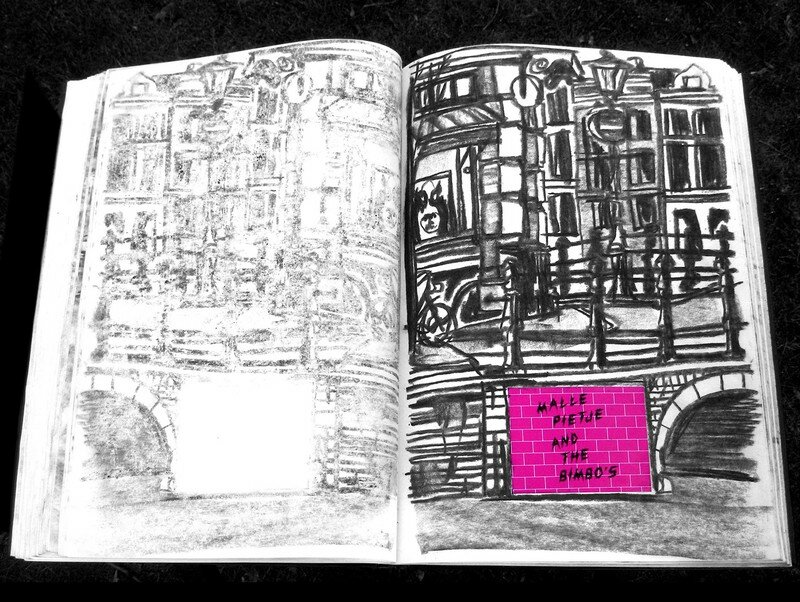 MALLE
PIETJE
AND
THE
BIMBO'S